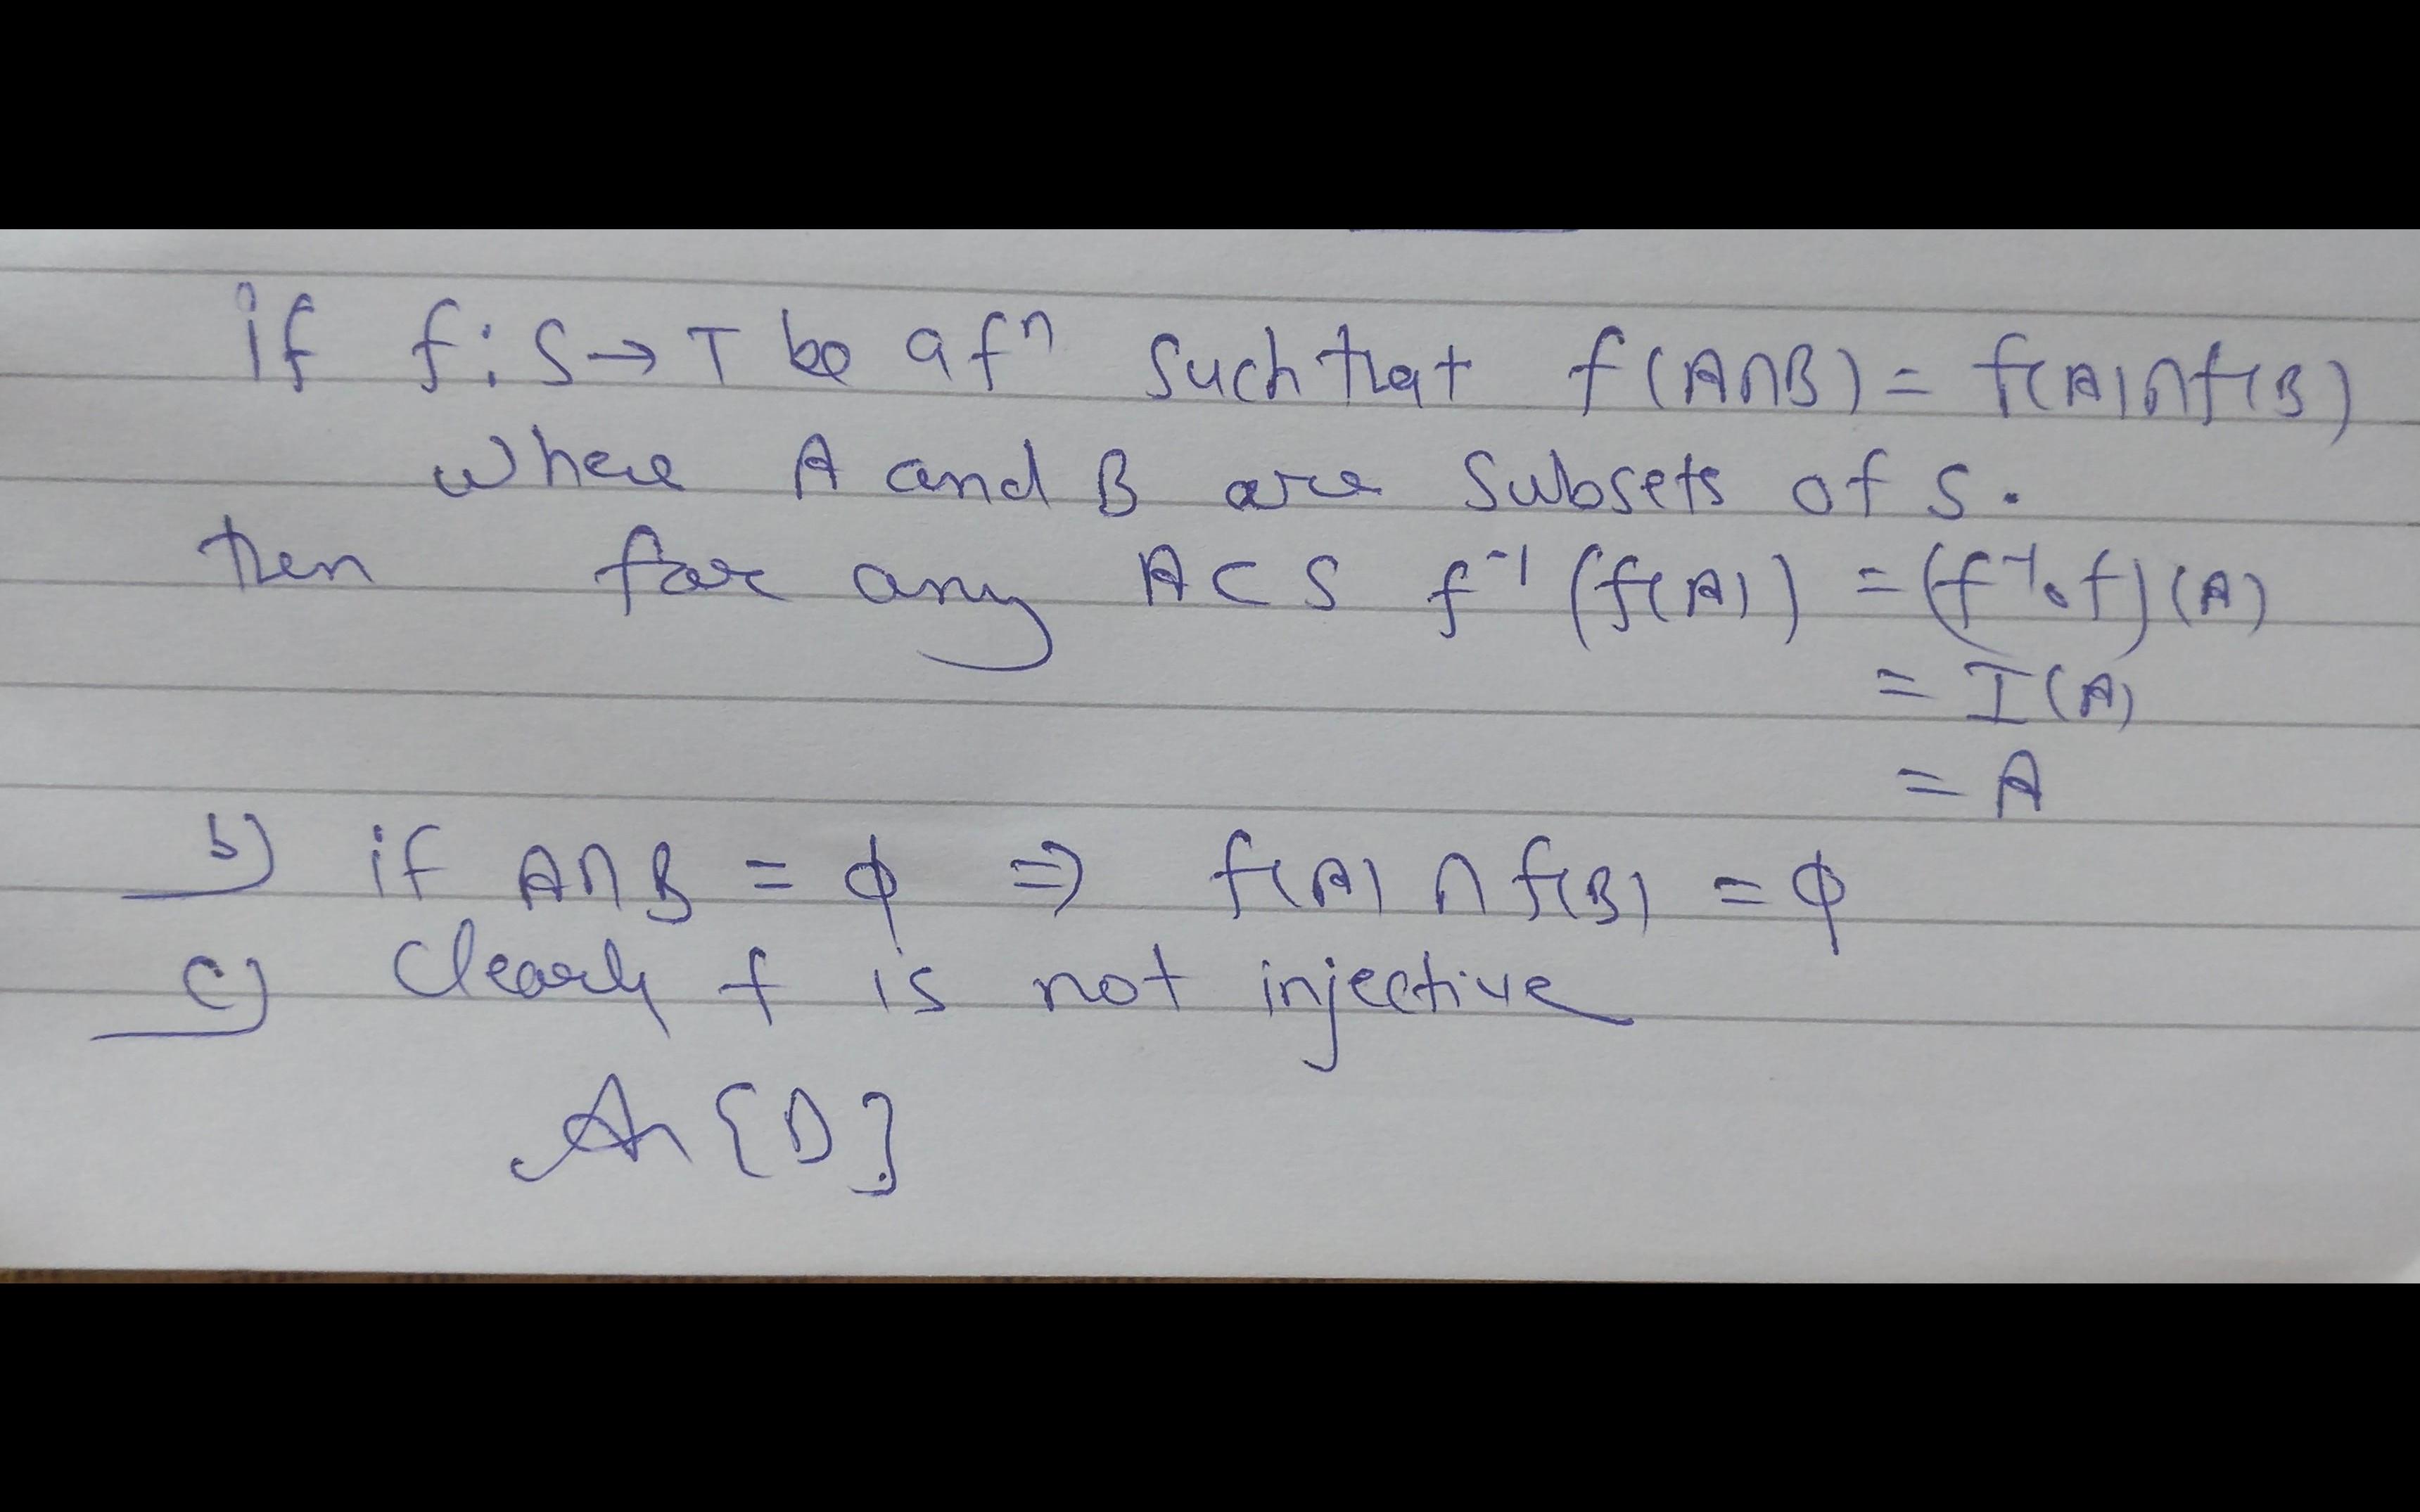 if f : S → T be a fⁿ such that f(A∩B) = f(A)∩f(B)
where A and B are subsets of S.
then for any A ⊂ S f⁻¹(f(A)) = (f⁻¹∘f)(A)
= I(A)
= A
b) if A∩B = ϕ ⇒ f(A) ∩ f(B) = ϕ
c) Clearly f is not injective
An [D]